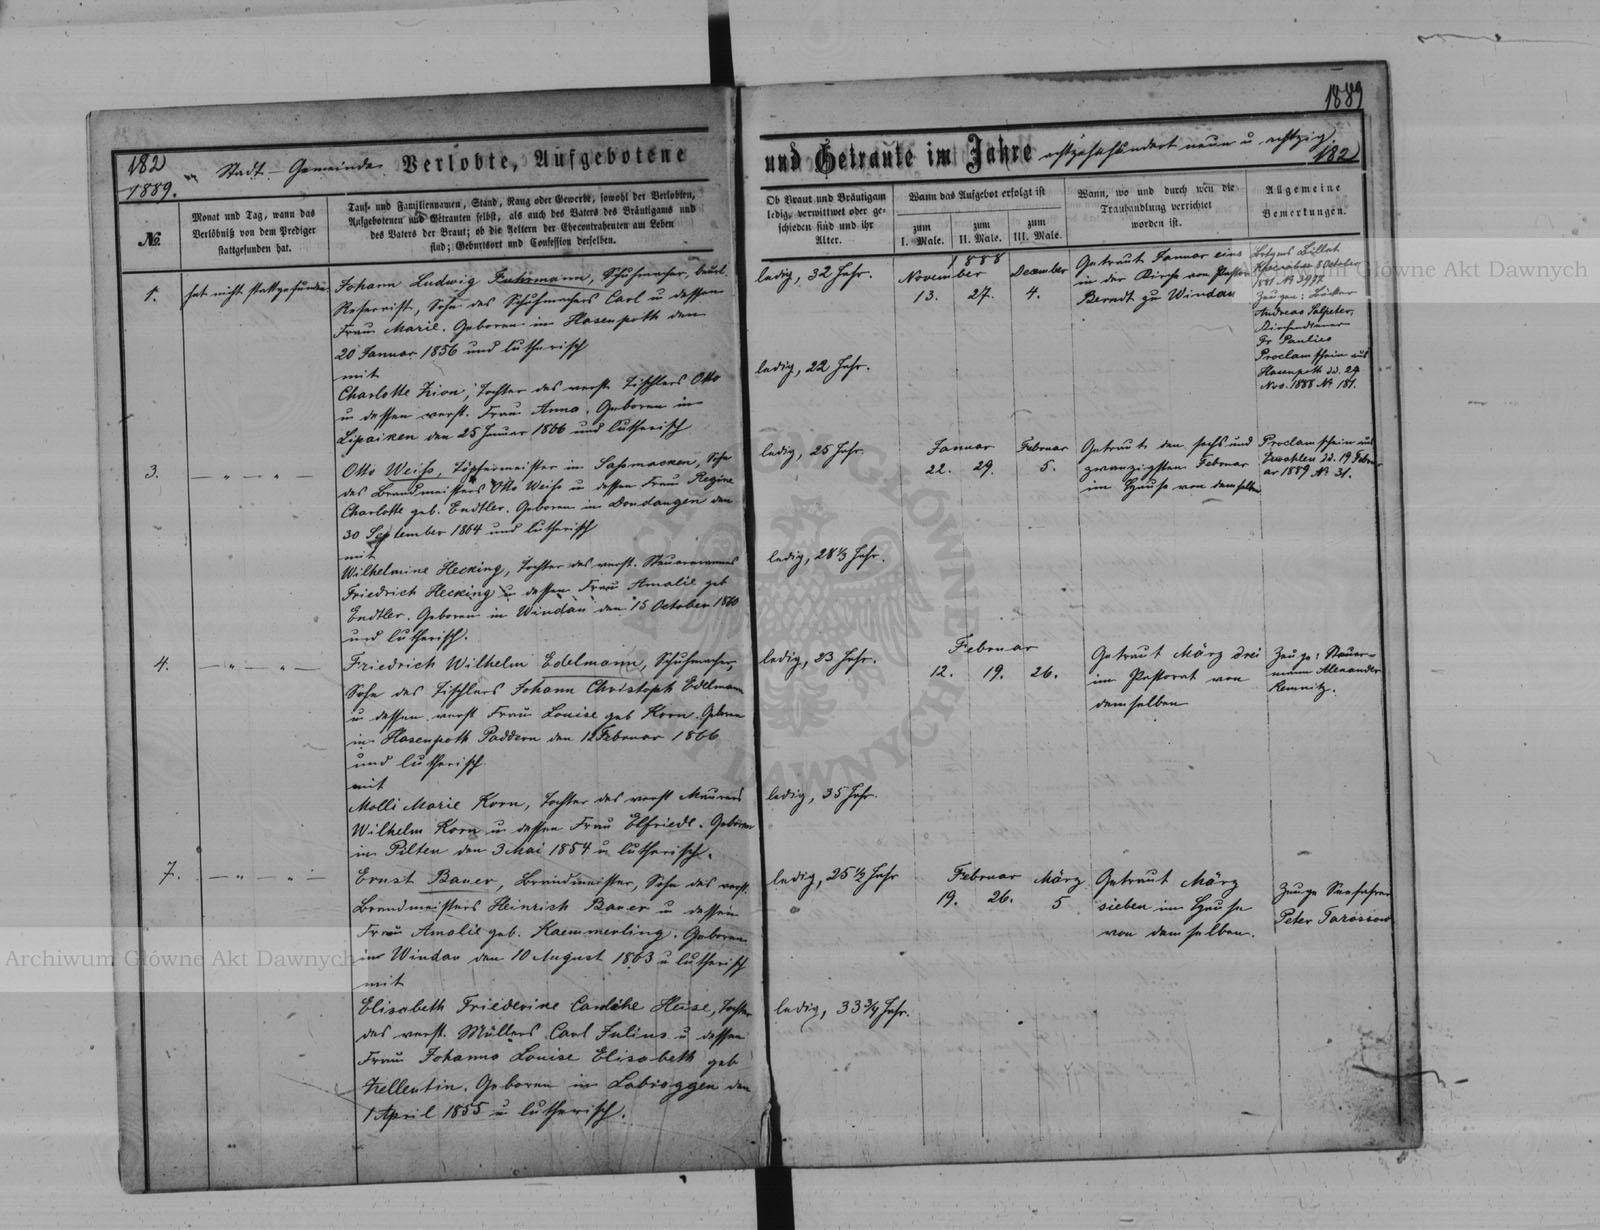 1889
182
1889.
Stadt - Gemeinde Verlobte, Aufgebotene
und Getraute im Jahre achtzehnhundert neun u. achtzig.
182
№
Monat und Tag, wann das
Verlöbniß von dem Prediger
stattgefunden hat.
Tauf- und Familiennamen, Stand, Rang oder Gewerbe, sowohl der Verlobten,
Aufgebotenen und Getrauten selbst, als auch des Vaters des Bräutigams und
des Vaters der Braut; ob die Aeltern der Ehecontrahenten am Leben
sind; Geburtsort und Confession derselben.
Ob Braut und Bräutigam
ledig, verwittwet oder ge-
schieden sind und ihr
Alter.
Wann das Aufgebot erfolgt ist
zum
I. Male.
zum
II. Male.
zum
III. Male.
Wann, wo und durch wen die
Trauhandlung verrichtet
worden ist.
Allgemeine
Bemerkungen.
1.
hat nicht stattgefunden.
Johann Ludwig Fuhrmann, Schuhmacher, beurl.
Reservist, Sohn des Schuhmachers Carl u dessen
Frau Marie. Geboren in Hasenpoth den
20 Januar 1856 und lutherisch
mit
Charlotte Zion, Tochter des verst. Tischlers Otto
u dessen verst. Frau Anna. Geboren in
Lipaiken den 25 Januar 1866 und lutherisch
ledig, 32 Jahr.
ledig, 22 Jahr.
1888
November December
13. 27. 4.
Getraut Januar eins
in der Kirche von Pastor
Berndt zu Windau
8 October
1881 № 3977
Zeugen:
Andreas Salpeter,
Kirchendiener
Fr. Paulies
Proclamschein aus
Hasenpoth d.d. 29
Nov. 1888 № 181.
3.
— " — " —
Otto Weiss, Töpfermeister in Sassmacken, Sohn
des Brandmeisters Otto Weiss u dessen Frau Regine
Charlotte geb. Endtler. Geboren in Dondangen den
30 September 1864 und lutherisch
mit
Wilhelmine Hecking, Tochter des verst. Steuermannes
Friedrich Hecking u dessen Frau Amalie geb
Endtler. Geboren in Windau den 15 October 1860
und lutherisch.
ledig, 25 Jahr.
ledig, 28 1/3 Jahr.
Januar Februar
22. 29. 5.
Getraut den sechs und
zwanzigsten Februar
im Hause von demselben
Proclamschein aus
d.d. 19 Febru-
ar 1889 № 31.
4.
— " — " —
Friedrich Wilhelm Edelmann, Schuhmacher,
Sohn des Tischlers Johann Christoph Edelmann
u dessen verst Frau Louise geb Korn. Geboren
in Hasenpoth Paddern den 12 Februar 1866
und lutherisch
mit
Molli Marie Korn, Tochter des verst Maurers
Wilhelm Korn u dessen Frau Elfriede. Geboren
in Pilten den 3 Mai 1854 u lutherisch.
ledig, 23 Jahr.
ledig, 35 Jahr.
Februar
12. 19. 26.
Getraut März drei
im Pastorat von
demselben
Zeuge: Steuer-
mann Alexander
Kemnitz.
7.
— " — " —
Ernst Bauer, Brandmeister, Sohn des verst.
Brandmeisters Heinrich Bauer u dessen
Frau Amalie geb. Kaemmerling. Geboren
in Windau den 10 August 1863 u lutherisch
mit
Elisabeth Friederike Heise, Tochter
des verst. Müllers Carl Julius u dessen
Frau Johanna Louise Elisabeth geb
Zellentin. Geboren in Labraggen den
1 April 1855 u lutherisch.
ledig, 25 1/2 Jahr
ledig, 33 3/4 Jahr.
Februar März
19. 26. 5
Getraut März
sieben im Hause
von demselben.
Zeuge Seefahrer
Peter Tarassow
Archiwum Główne Akt Dawnych
Archiwum Główne Akt Dawnych